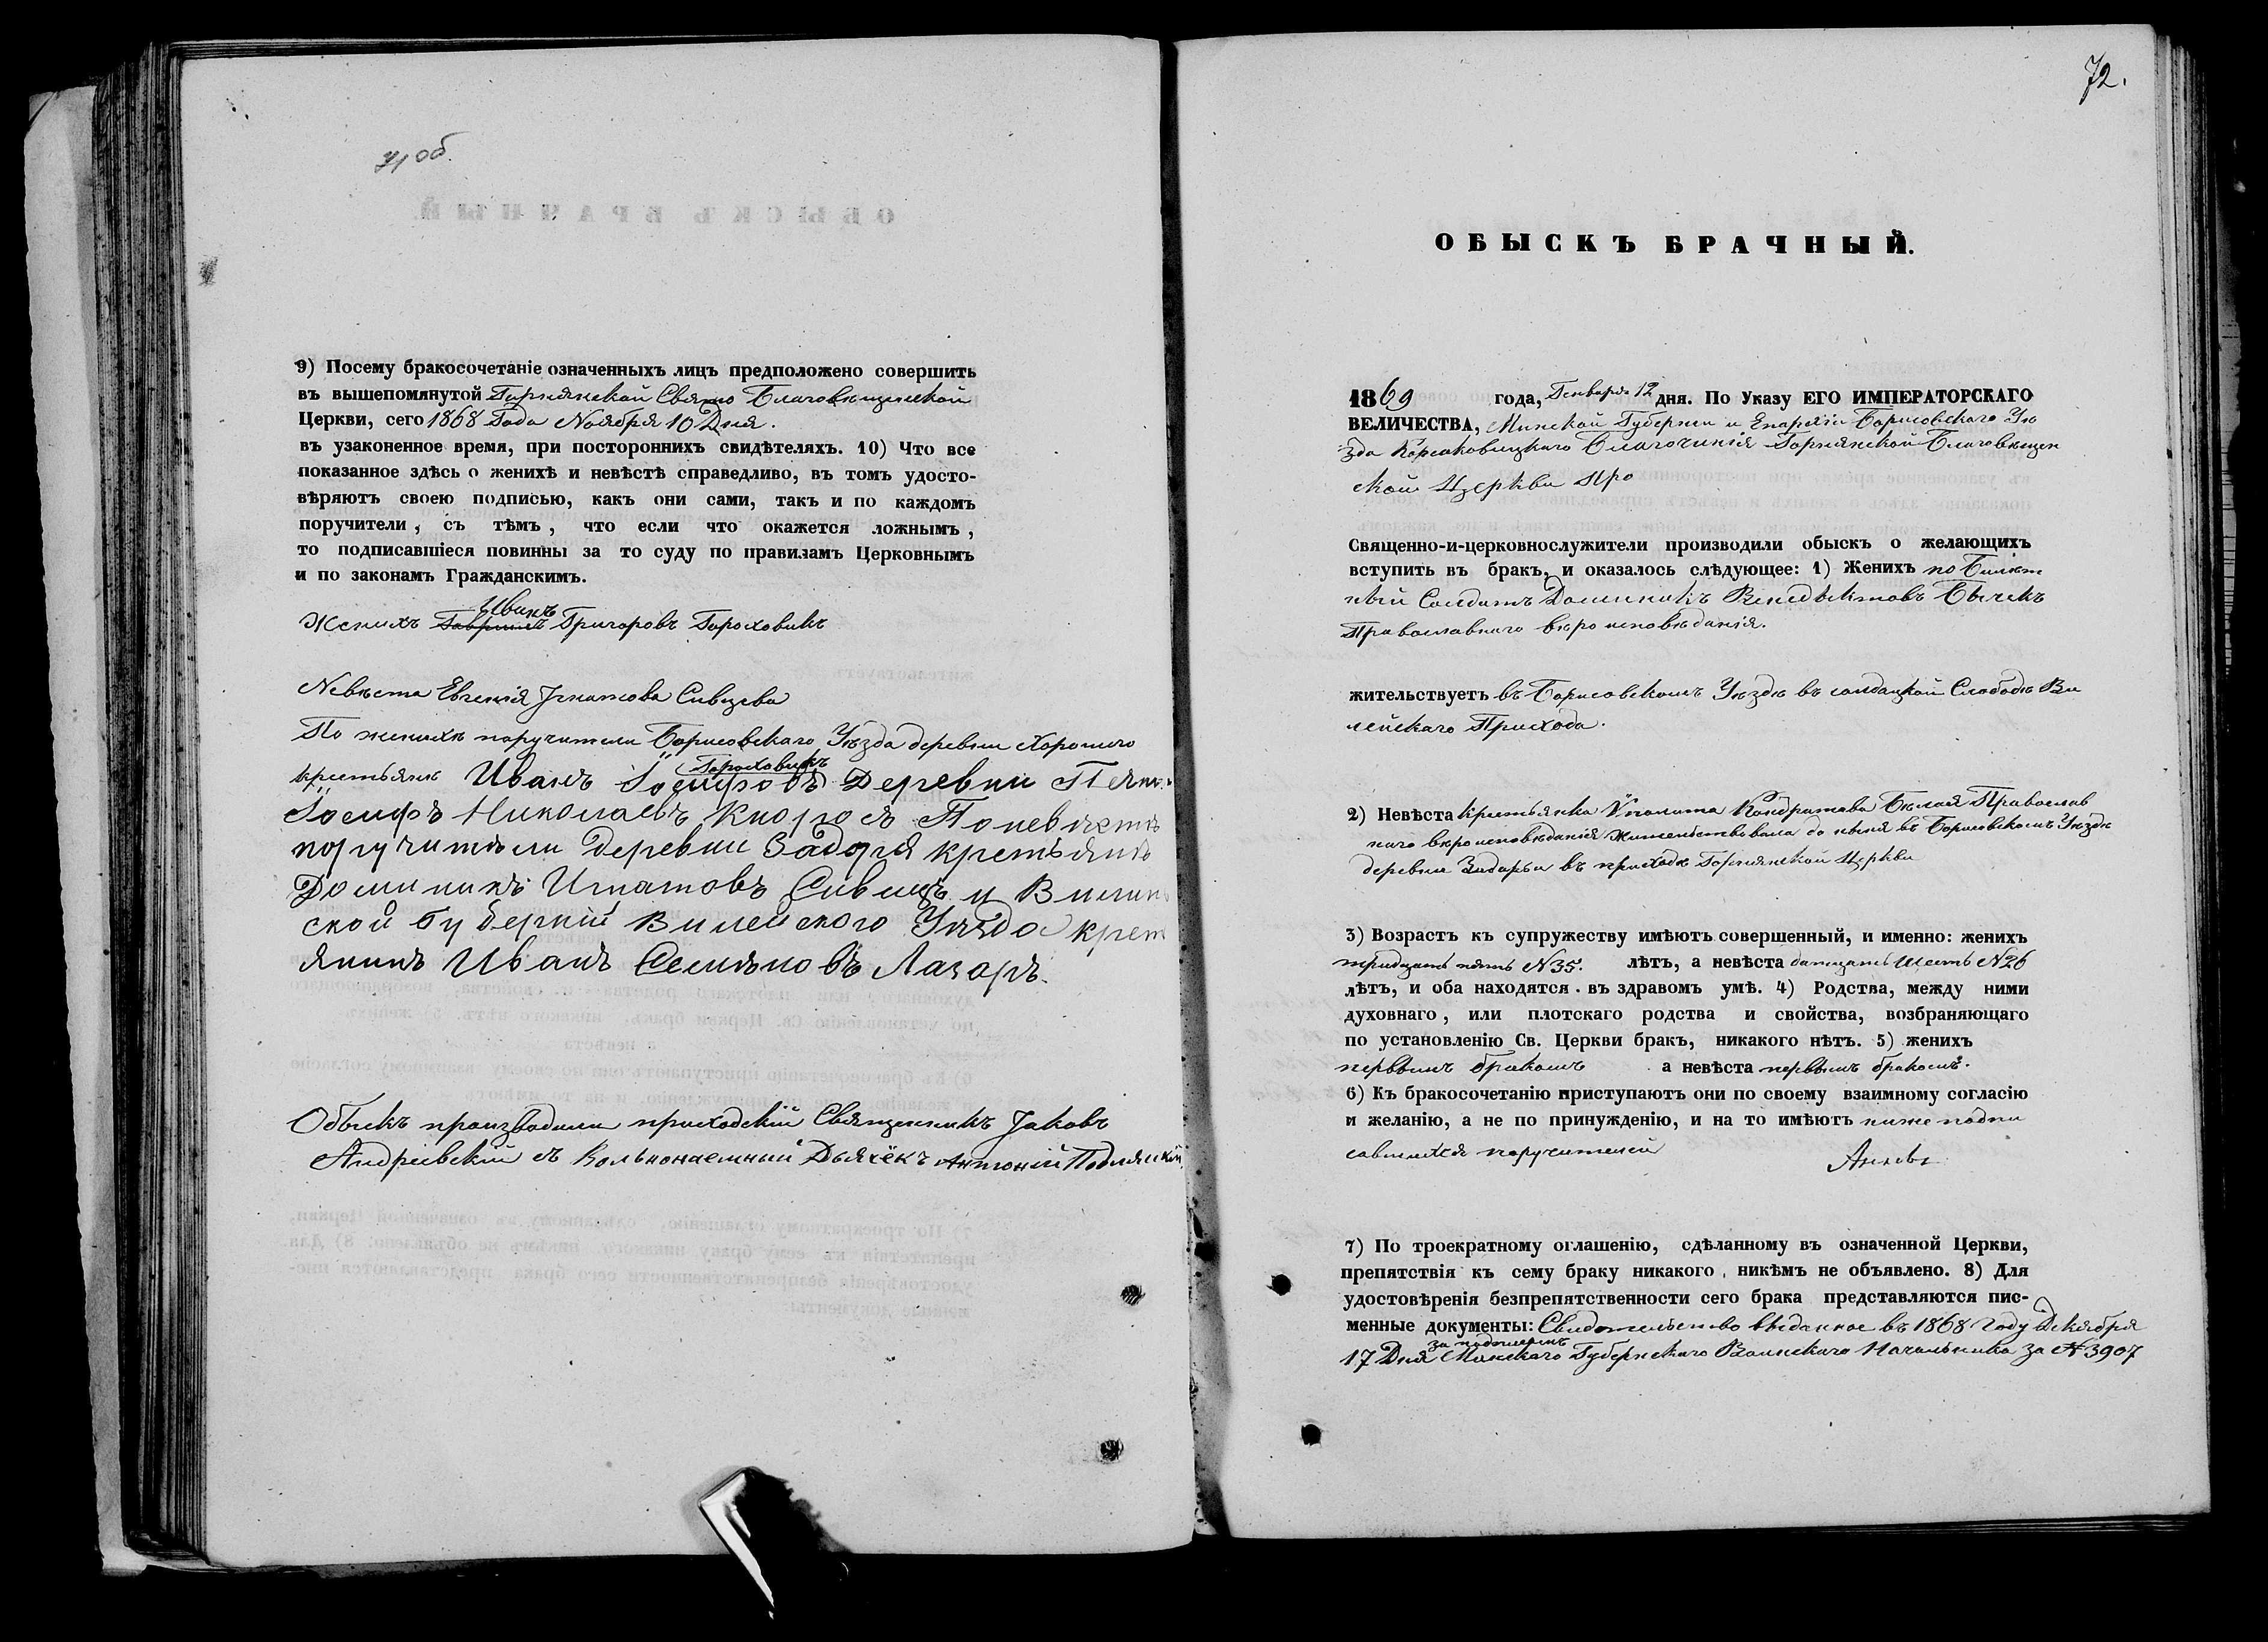 71 об.
9) Посему бракосочетаніе означенныхъ лицъ предположено совершить
въ вышепомянутой Горнянской Свято Благовѣщенской
Церкви, сего 1868 Года Ноября 10 Дня.
въ узаконенное время, при постороннихъ свидѣтеляхъ. 10) Что все
показанное здѣсь о женихѣ и невѣстѣ справедливо, въ томъ удосто-
вѣряютъ своею подписью, какъ они сами, такъ и по каждомъ
поручители, съ тѣмъ, что если что окажется ложнымъ,
то подписавшіеся повинны за то суду по правиламъ Церковнымъ
и по законамъ Гражданскимъ.
Иванъ
Женихъ Григоровъ Гороховикъ
Невѣста Евгенія Игнатова Сивцева
По женихѣ поручители Борисовскаго Уѣзда деревни Хорошаго
Гороховикъ
крестьяне Иванъ Іосифовъ Деревни
Іосифъ Николаевъ Поневѣстѣ
поручители деревни Задоря крестьянъ
Доминикъ Игнатовъ Сивецъ и Вилен
ской Губерній Вилейского Уѣзда крест
янинъ Иванъ Семѣновъ Лазарь.
Обыскъ производили приходскій Священникъ Іаковъ
Андріевскій съ Вольнонаемный Дьячёкъ Антоній
72.
ОБЫСКЪ БРАЧНЫЙ.
1869 года, Генваря 12 дня. По Указу ЕГО ИМПЕРАТОРСКАГО
ВЕЛИЧЕСТВА, Минской Губерніи и Епархіи Борисовскаго Уѣ
зда Корсаковицкаго Благочинія Горнянской Благовѣщен
ской Церкви про
Священно-и-церковнослужители производили обыскъ о желающихъ
вступить въ бракъ, и оказалось слѣдующее: 1) Женихъ по Билет
ный Солдатъ Доминикъ Венедыктовъ Бычекъ
Православнаго вѣроисповѣданія.
жительствуетъ въ Борисовскомъ Уѣздѣ въ солдацкой Слободѣ Ви
лейскаго Прихода.
2) Невѣста крестьянка Кондратова Бѣлая Православ
наго вѣроисповѣданія жительствовала до нынѣ въ Борисовскомъ Уѣздѣ
деревни Задорьи въ приходѣ Горнянской Церкви
3) Возрастъ къ супружеству имѣютъ совершенный, и именно: женихъ
тридцать пять N 35. лѣтъ, а невѣста дватцать шесть N 26
лѣтъ, и оба находятся въ здравомъ умѣ. 4) Родства, между ними
духовнаго, или плотскаго родства и свойства, возбраняющаго
по установленію Св. Церкви бракъ, никакого нѣтъ. 5) женихъ
первымъ бракомъ а невѣста первымъ бракомъ.
6) Къ бракосочетанію приступаютъ они по своему взаимному согласію
и желанію, а не по принужденію, и на то имѣютъ ниже подпи
савшихся поручителей
7) По троекратному оглашенію, сдѣланному въ означенной Церкви,
препятствія къ сему браку никакого, никѣмъ не объявлено. 8) Для
удостовѣренія безпрепятственности сего брака представляются пис-
менные документы: Свидетельство выданное въ 1868 Году Декабря
17 Дня Минскаго Губернскаго Воинскаго Начальника за N 3907